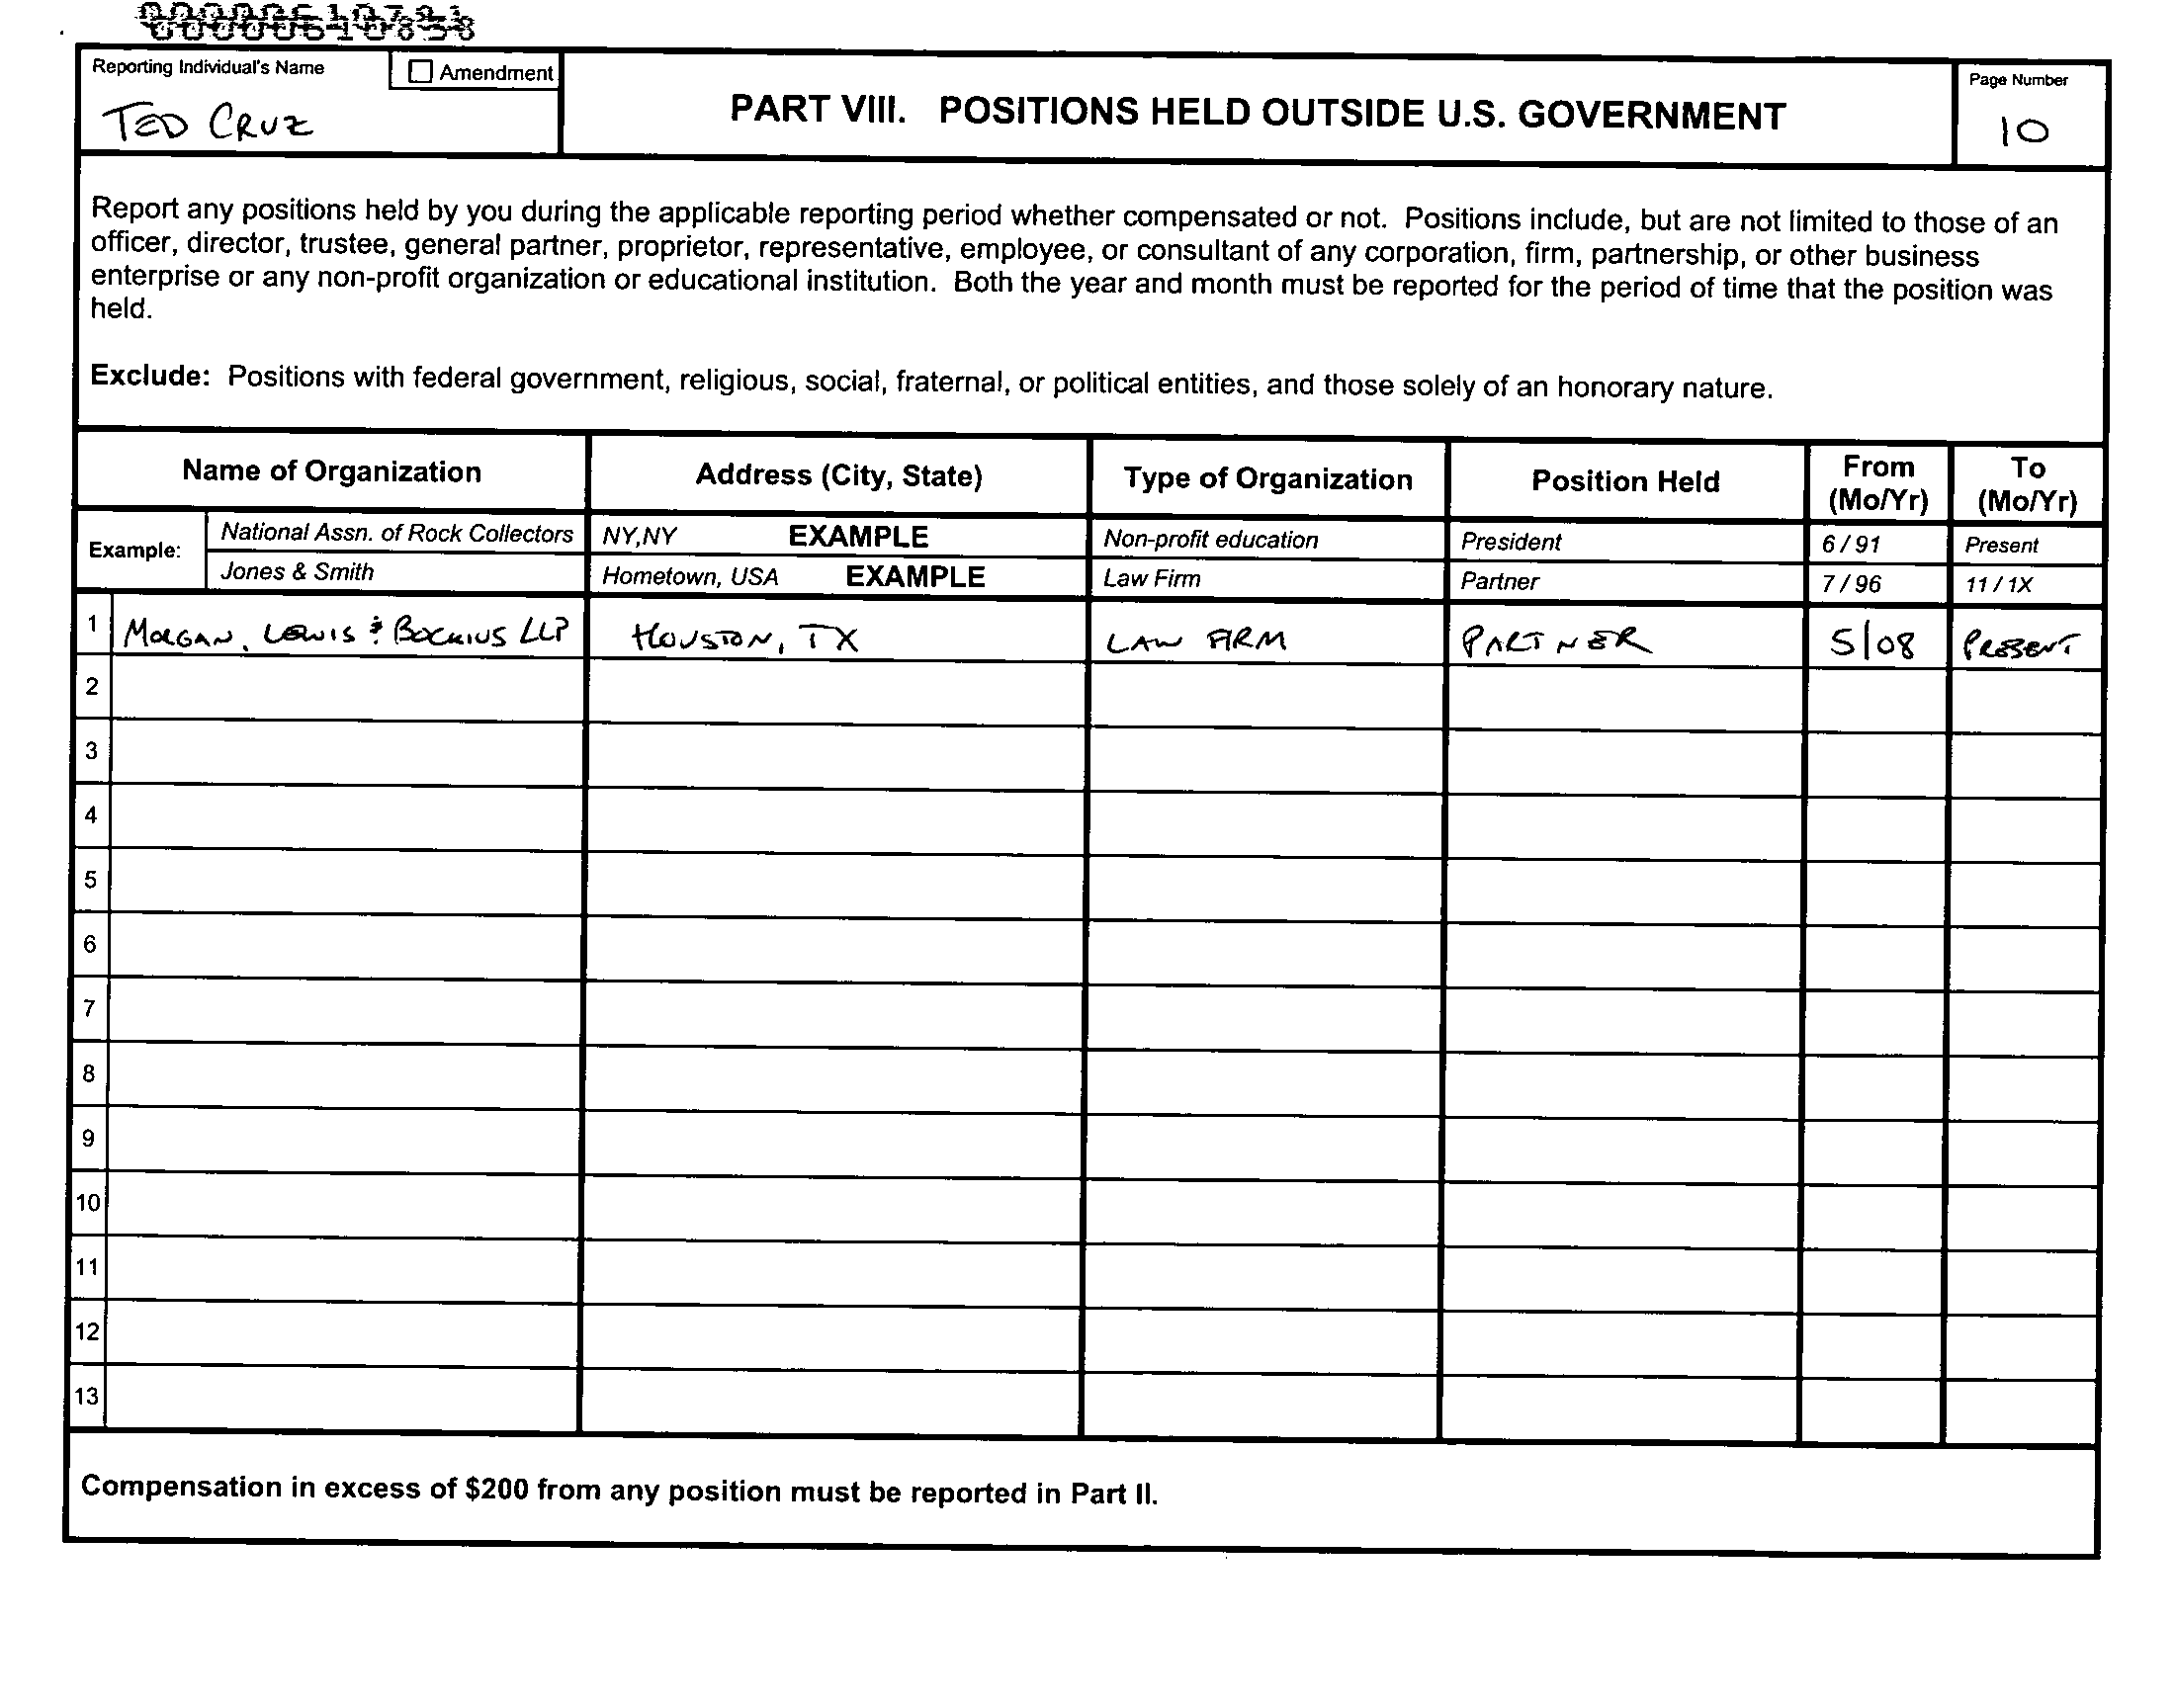 Reporting Individual's Name
Amendment
TED CRUZ
PART VIII. POSITIONS HELD OUTSIDE U.S. GOVERNMENT
Page Number
10
Report any positions held by you during the applicable reporting period whether compensated or not. Positions include, but are not limited to those of an
officer, director, trustee, general partner, proprietor, representative, employee, or consultant of any corporation, firm, partnership, or other business
enterprise or any non-profit organization or educational institution. Both the year and month must be reported for the period of time that the position was
held.
Exclude: Positions with federal government, religious, social, fraternal, or political entities, and those solely of an honorary nature.
Name of Organization Address (City, State) Type of Organization Position Held From (Mo/Yr) To (Mo/Yr)
Example: National Assn. of Rock Collectors NY,NY EXAMPLE Non-profit education President 6 / 91 Present
Jones & Smith Hometown, USA EXAMPLE Law Firm Partner 7 / 96 11 / 1X
1 MORGAN, LEWIS & BOCKIUS LLP HOUSTON, TX LAW FIRM PARTNER 5/08 PRESENT
2
3
4
5
6
7
8
9
10
11
12
13
Compensation in excess of $200 from any position must be reported in Part II.